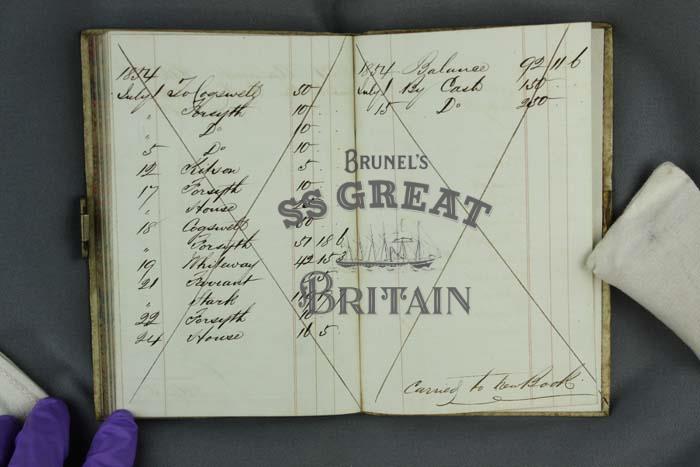 1854
July 1 To Cogswell 50
" Forsyth 10
" Do 10
5 Do 10
12 Kitson 5
17 Forsyth 10
" House
18 Cogswell 50
" Forsyth 51 18 6
19 Whiteway 42 15 3
21
" Stark
22 Forsyth 10
24 House 16 5
1854 Balance 92 11 6
July 1 By Cash 150
15 Do 250
Carried to New Book
BRUNEL'S
SS GREAT
BRITAIN